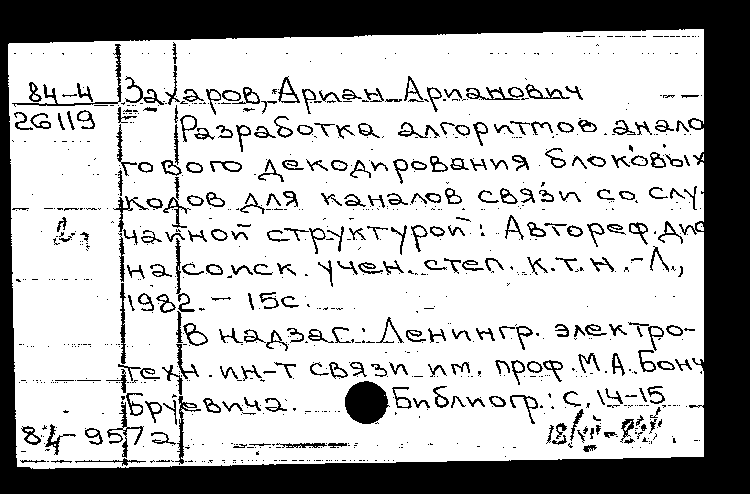 84-4 Захаров, Ариан Арианович
26119 Разработка алгоритмов анало
гового декодирования блоковых
кодов для каналов связи со слу-
чайной структурой: Автореф. дис
на соиск. учен. степ. к.т.н. -Л.,
1982. - 15с.
В надзаг.: Ленингр. электро-
техн. ин-т связи им. проф. М.А. Бонч
Бруевича. Библиогр.: с. 14-15
84-9572